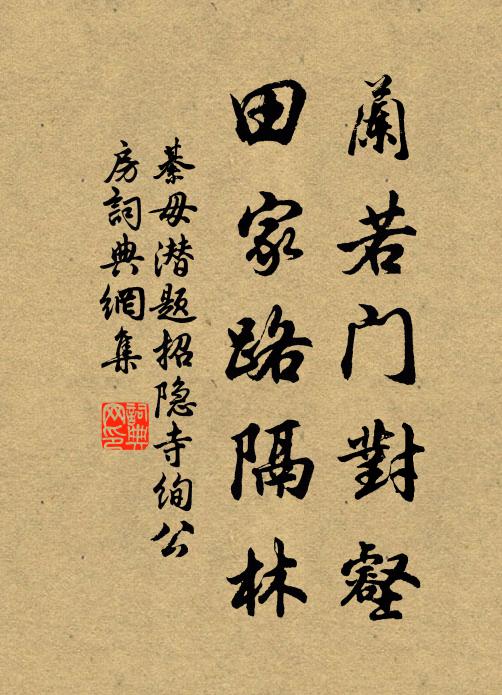 蘭若门對壑
田家路隔林
綦毋潜题招隐寺绚公
房詞典網集
詞典网印